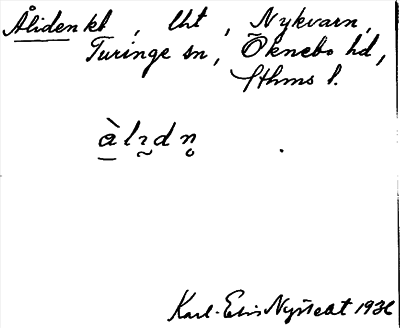 Åliden kt, lht, Nykvarn,
Turinge sn, Öknebo hd,
Sthms l.
àlɿdn̥
Karl-Elis Nystedt 1936